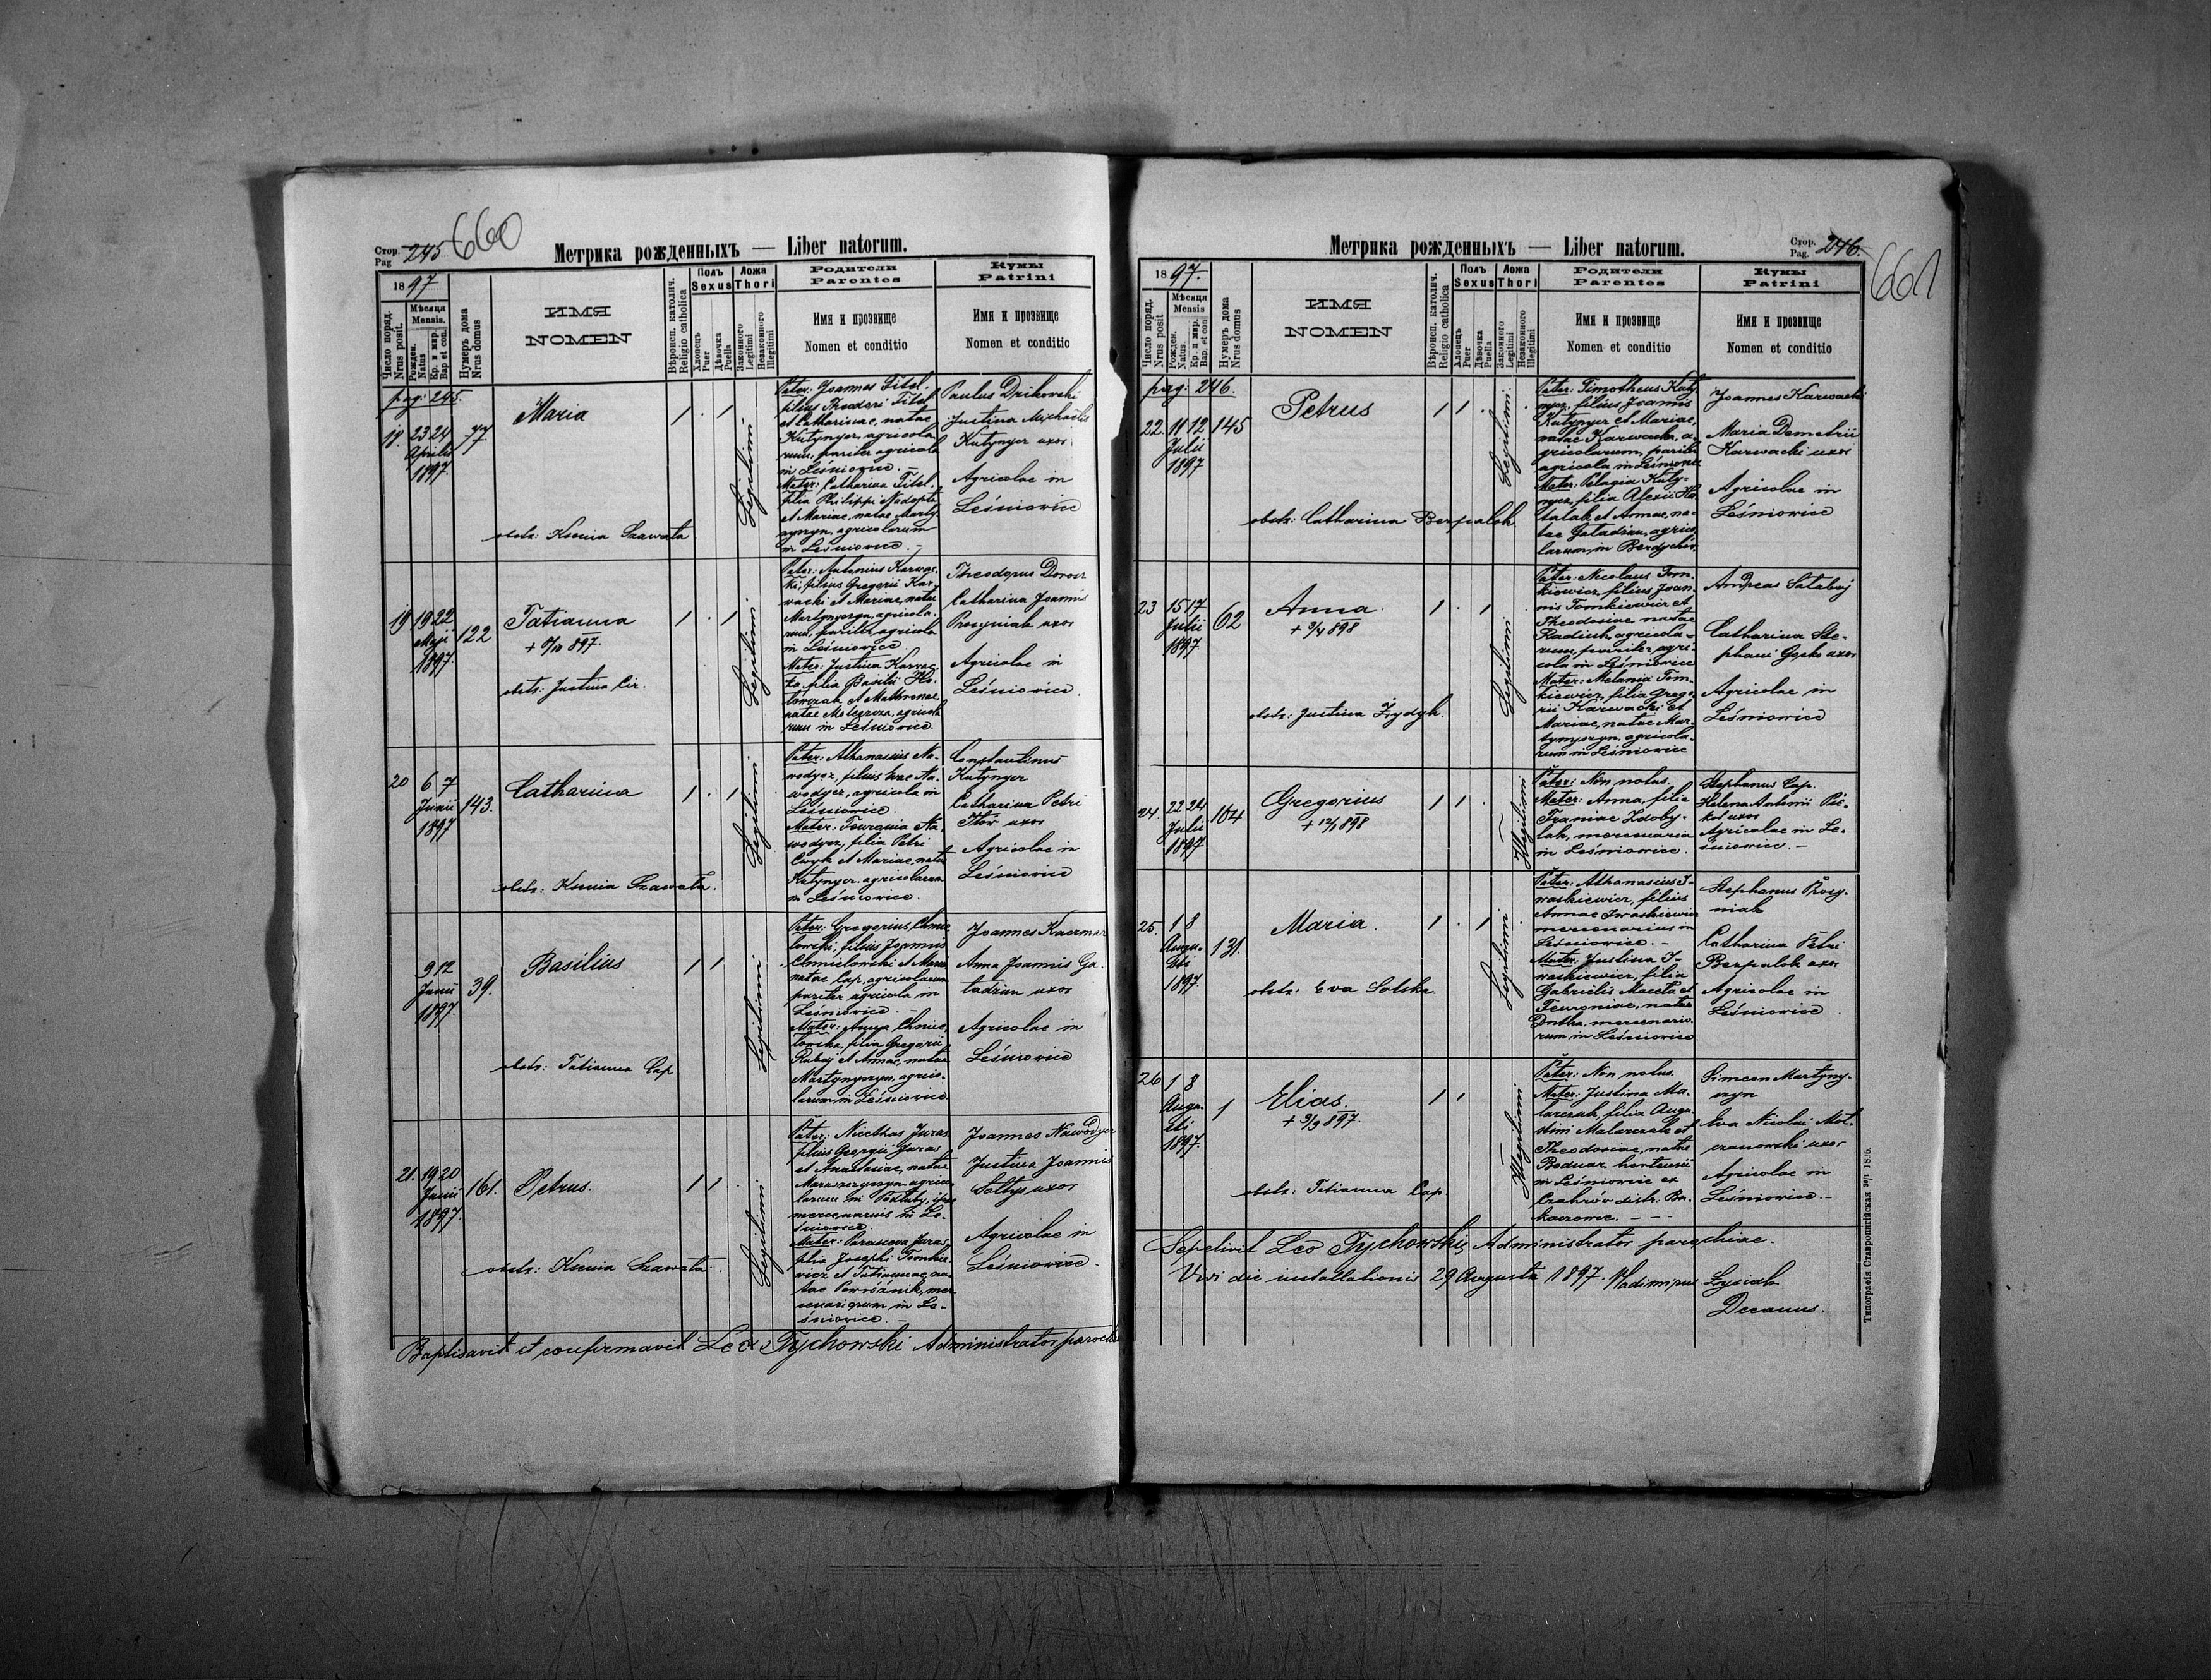 Стор. Pag 245 660
Метрика рожденныхъ — Liber natorum.
1897
Число поряд. Nrus posit.
Мѣсяця Mensis.
Рожден. Natus
Кр. и мѵр. Bap et con.
Нумеръ дома Nrus domus
ИМЯ
NOMEN
Вѣроисп. католич. Religio catholica
Полъ Sexus
Хлопецъ Puer
Дѣвочка Puella
Ложа Thori
Законного Legitimi
Незаконного Illegitimi
Родители Parentes
Имя и прозвище
Nomen et conditio
Кумы Patrini
Имя и прозвище
Nomen et conditio
pag: 245.
23 24
Aprilis
1897.
77
Maria
obstr: Ksenia Szawała
Legitimi
Pater: Joannes Titel.
filius Theodori Titel
et Catharinae, natae
Kutynyer, agricola
rum, pariter agricola
in Leśniowice. —
Mater: Catharina Titel.
filia Philippi
et Mariae, natae Marty
nyszyn, agricolarum
in Leśniowice. —
Paulus
Justina Michaëlis
Kutynyer uxor
Agricolae in
Leśniowice
19
19 22
Maji
1897.
122
Tatianna
obstr: Justina Cir.
Legitimi
Pater: Antonius Karwac
ki, filius Gregorii Kar
wacki et Mariae, natae
Martynyszyn, agricola
rum, pariter agricola
in Leśniowice.
Mater: Justina Karwac
ka, filia Basilii Ho
łowczak et Mathronae,
natae agricola
rum in Leśniowice.
Theodorus
Catharina Joannis
Procyniak uxor
Agricolae in
Leśniowice.
20
6 7
Junii
1897
143.
Catharina
obstr: Ksenia Szawała.
Legitimi
Pater: Athanasius Na
wodycz, filius Na
wodycz, agricola in
Leśniowice.
Mater: Na
wodycz, filia Petri
et Mariae, natae
Kutynyer agricolarum
in Leśniowice.
Constantinus
Kutynyer
Catharina Petri
uxor
Agricolae in
Leśniowice
9 12
Junii
1897.
39.
Basilius
obstr: Tatianna Cap
Legitimi
Pater: Gregorius Chmie
lowski, filius Joannis
Chmielowski et Mariae
natae Cap, agricolarum
pariter agricola in
Leśniowice. —
Mater: Anna Chmie
lowska, filia Gregorii
et Annae, natae
Martynyszyn, agrico
larum in Leśniowice
Joannes Kaczmar
Anna Joannis Ga
ładziun uxor
Agricolae in
Leśniowice
21.
19 20
Junii
1897.
161.
Petrus.
obstr: Ksenia Szawała.
Legitimi
Pater: Nicethas Juras
filius Georgii Juras
et Anastasiae, natae
agrico
larum in ipse
mercenarius in Le
śniowice.
Mater: Parasceva Juras,
filia Josephi Tomkie
wicz et Tatiannae, na
tae Powróźnik, mer
cenariorum in Le-
śniowice. —
Joannes Nawodycz
Justina Joannis
Sołtys uxor
Agricolae in
Leśniowice.
Baptisavit et confirmavit Leo Tychowski Administrator paroch
Метрика рожденныхъ — Liber natorum.
Стор. Pag. 246. 661
1897.
Число поряд. Nrus posit
Мѣсяця Mensis
Рожден. Natus.
Кр. и мѵр. Bap. et con
Нумеръ дома Nrus domus
ИМЯ
NOMEN
Вѣроисп. католич. Religio catholica
Полъ Sexus
Хлопецъ Puer
Дѣвочка Puella
Ложа Thori
Законного Legitimi
Незаконного Illegitimi
Родители Parentes
Имя и прозвище
Nomen et conditio
Кумы Patrini
Имя и прозвище
Nomen et conditio
pag: 246.
22.
11 12
Julii
1897
145
Petrus
obstr: Catharina Berpalok
Legitimi.
Pater: Timotheus Kuty
nyer, filius Joannis
Kutynyer et Mariae,
natae Karwacka, a
gricolarum, pariter
agricola in Leśniowice
Mater: Pelagia Kuty-
nyer, filia Alexii
et Annae, na
tae Gaładziun, agrico
larum in Berdychów
Joannes Karwacki
Maria Demetrii
Karwacki uxor
Agricolae in
Leśniowice
23
15 17
Julii
1897.
62
Anna.
obstr: Justina Zrydyk.
Legitimi
Pater: Nicolaus Tom
kiewicz, filius Joan
nis Tomkiewicz et
Theodosiae, natae
agricola-
rum, pariter agri-
cola in Leśniowice
Mater: Melania Tom
kiewicz, filia Grego
rii Karwacki et
Mariae, natae Mar
tynyszyn, agricola-
rum in Leśniowice
Andreas
Catharina Ste-
phani uxor
Agricolae in
Leśniowice
24.
22 24
Julii
1897.
104
Gregorius
Illegitimi
Pater: Non notus.
Mater: Anna, filia
Zdoby-
lak, mercenaria
in Leśniowice.
Stephanus Cap.
Helena Antonii
uxor
Agricolae in Le-
śniowice. —
25.
1 8
Augu-
sti
1897.
131.
Maria.
obstr: Eva Solska.
Legitimi
Pater: Athanasius I-
waskiewicz, filius
Annae Iwaskiewicz
mercenarius in
Leśniowice. —
Mater: Justina I-
waskiewicz, filia
Gabrielis Maceła et
Feuroniae, natae
mercenario
rum in Leśniowice
Stephanus Procy-
niak
Catharina Petri
Berpalok uxor
Agricolae in
Leśniowice.
26
1 8
Augu
sti
1897.
1
Elias.
+ 3/9 897.
obstr: Tatianna Cap
Illegitimi
Pater: Non notus.
Mater: Justina Ma-
larczak, filia Augu
stini Malarczak et
Theodosiae, natae
Bodnar, hortensii
in Leśniowice ex
Czahrów distr. Bu-
kaczowce. — - -
Simeon Martyny-
szyn
Eva Nicolai Moł-
czanowski uxor
Agricolae in
Leśniowice. —
Sepelivit Leo Tychowski, Administrator parochiae.
Vidi die installationis 29 Augusta 1897. Vladimirus Łysiak
Decanus.
Типографія Ставропигійская